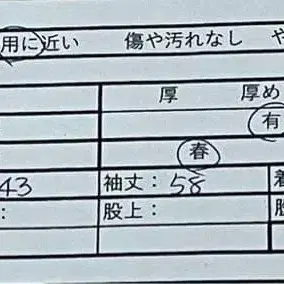 用に近い 傷や汚れなし や
厚 厚め
有
春
43 袖丈：58 着
： 股上： 股